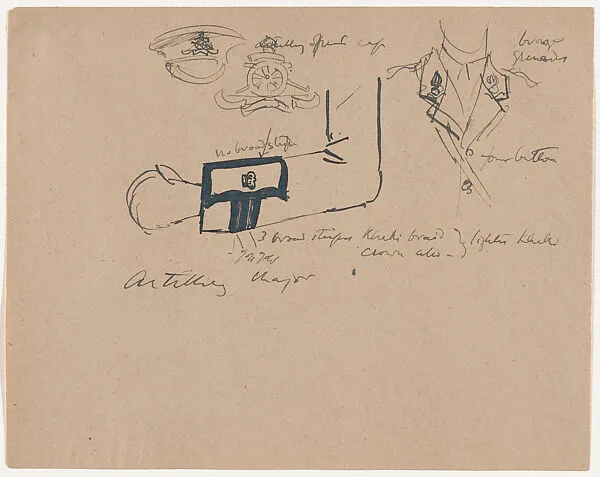 artillery officer cap
bronze
grenades
no broad stripe
four button
3 broad stripes Khaki braid } lighter khaki
crown also -
Artillery Major